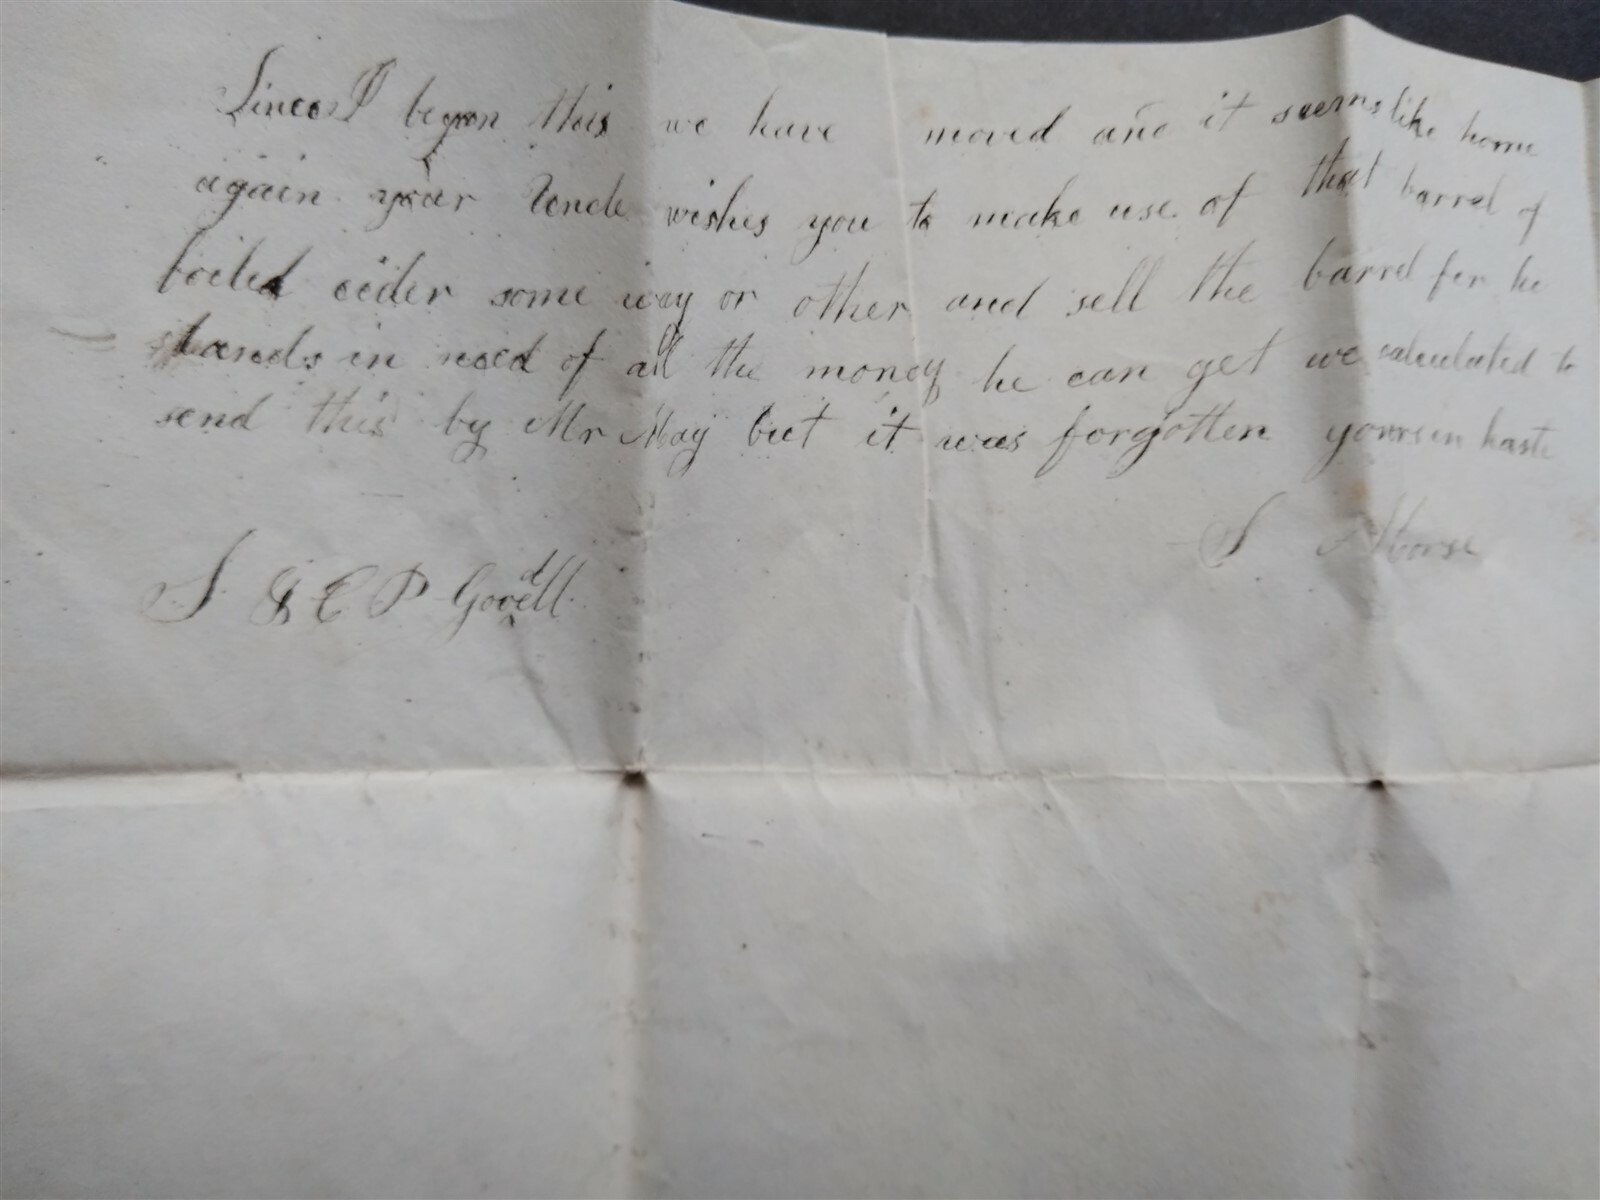 Since I began this we have moved and it seems like home
again your Uncle wishes you to make use of that barrel of
boiled cider some way or other and sell the barrel for he
stands in need of all the money he can get we calculated to
send this by Mr May but it was forgotten yours in haste
S Morse
S. & C P Goodell